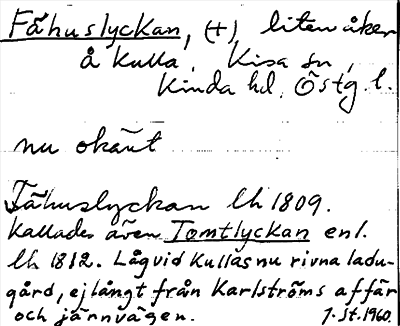 Fähuslyckan, (+), liten åker
å Kulla, Kisa sn,
Kinda hd, Östg. l.
nu okänt
Fähuslyckan lh 1809.
Kallades även Tomtlyckan enl.
lh 1812. Låg vid Kullas nu rivna ladu-
gård, ej långt från Karlströms affär
och järnvägen. J. St. 1960.